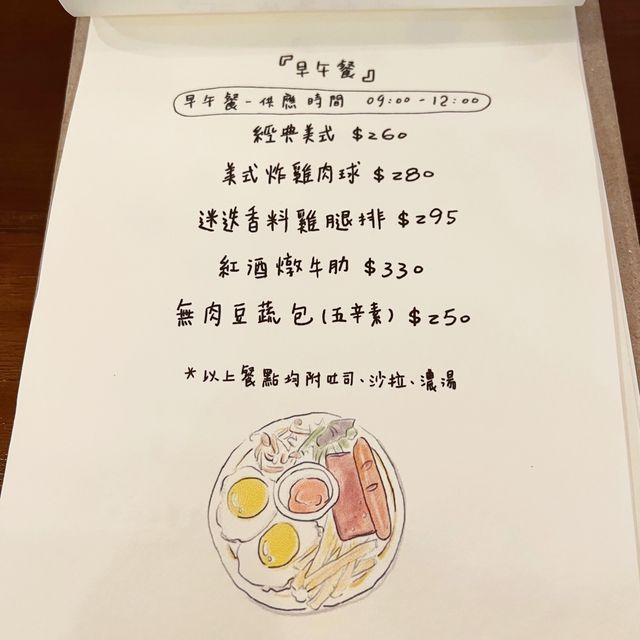 『早午餐』
早午餐-供應時間 09:00-12:00
經典美式 $260
美式炸雞肉球 $280
迷迭香料雞腿排 $295
紅酒燉牛肋 $330
無肉豆蔬包(五辛素) $250
*以上餐點均附吐司、沙拉、濃湯